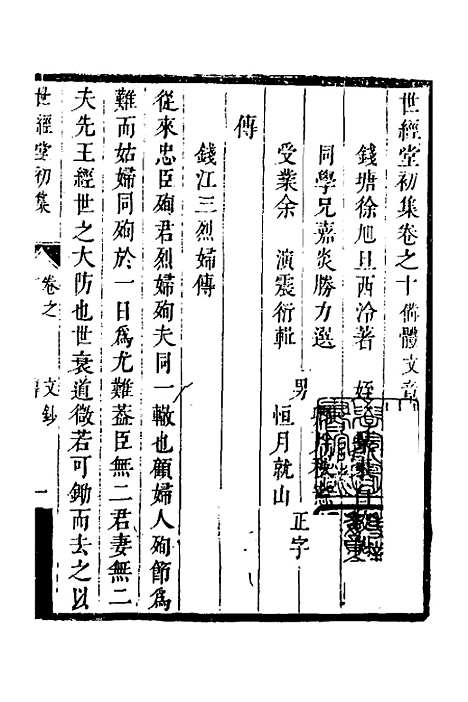 世經堂初集卷之十備體文章
錢塘徐旭旦西泠著　姪
同學兄嘉炎勝力選
受業余　演震衍輯　男　恒月就山　正字
傳
錢江三烈婦傳
從來忠臣殉君烈婦殉夫同一轍也顧婦人殉節爲
難而姑婦同殉於一日爲尤難葢臣無二君妻無二
夫先王經世之大防也世衰道微若可鋤而去之以
世經堂初集　卷之　文鈔　一